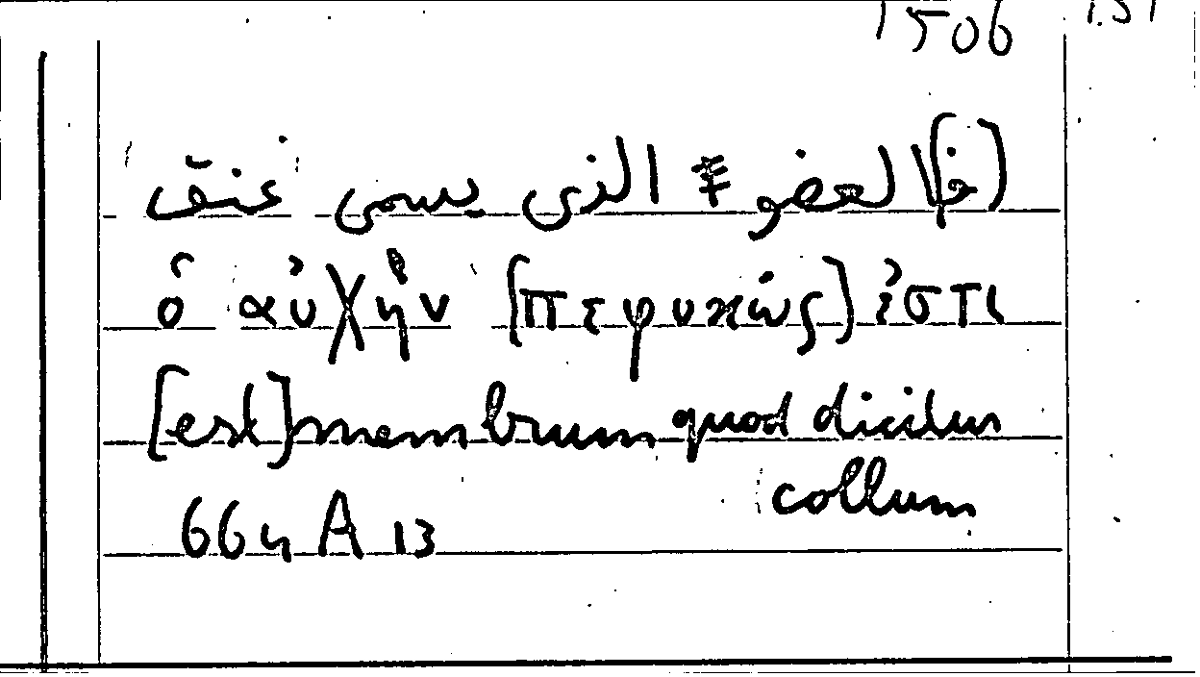 1506 151
(فا)لعضو الذى يسمى عنق
ὁ αὐχὴν [πεφυκὼς] ἐστι
[est] membrum quod dicitur
collum
664 A 13